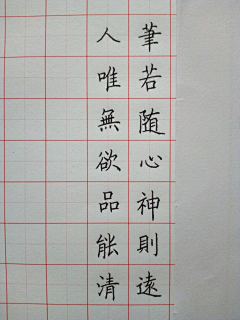 筆若随心神則遠
人唯無欲品能清